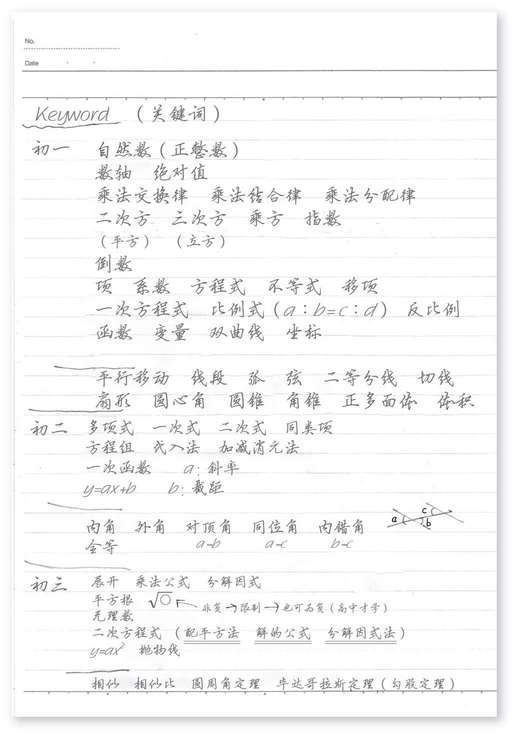 No.
Date
Keyword （关键词）
初一 自然数（正整数）
数轴 绝对值
乘法交换律 乘法结合律 乘法分配律
二次方 三次方 乘方 指数
（平方） （立方）
倒数
项 系数 方程式 不等式 移项
一次方程式 比例式（a：b=c：d） 反比例
函数 变量 双曲线 坐标
平行移动 线段 弧 弦 二等分线 切线
扇形 圆心角 圆锥 角锥 正多面体 体积
初二 多项式 一次式 二次式 同类项
方程组 代入法 加减消元法
一次函数 a：斜率
y=ax+b b：截距
内角 外角 对顶角 同位角 内错角 a c b
全等 a-b a-c b-c
初三 展开 乘法公式 分解因式
平方根 √○ ← 非负→限制→也可为负（高中才学）
无理数
二次方程式（配平方法 解的公式 分解因式法）
y=ax² 抛物线
相似 相似比 圆周角定理 毕达哥拉斯定理（勾股定理）